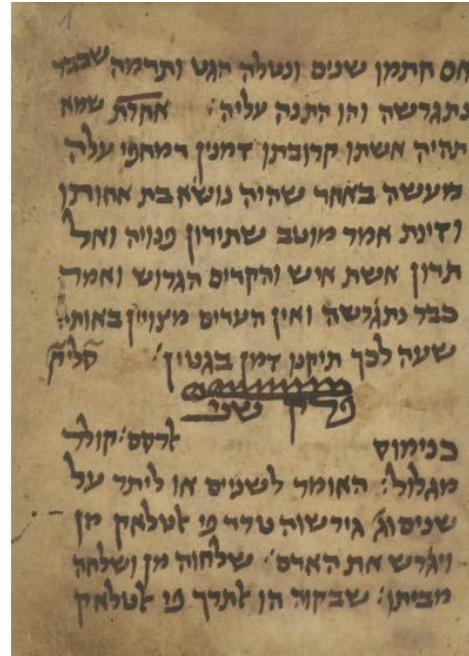 1
אם חתמו שנים ונטלה הגט ותדמה שכבר
נתגרשה והו התנה עליה: אחרת שמא
תהיה אשתו קרובתו דמנין דמחפי עלה
מעשה באחד שהיה נושא בת אחותו
וזינת אמר מוטב שתידון פנויה ואל
תדון אשת איש והקדים הגרוש ואמר
כבר נתגרשה ואין העדים מצויין באותה
שעה לכך תיקנו זמן בגטין: סליק
פרק שני
בנימוס ארסם: קולך
מגלול: האומר לשנים או ליתר על
שנים וג׳ גירשוה טרד פי אטלאק מן
ויגרש את האדם: שלחוה מן ושלחה
מביתו: שבקוה הו אתרך פי אטלאק